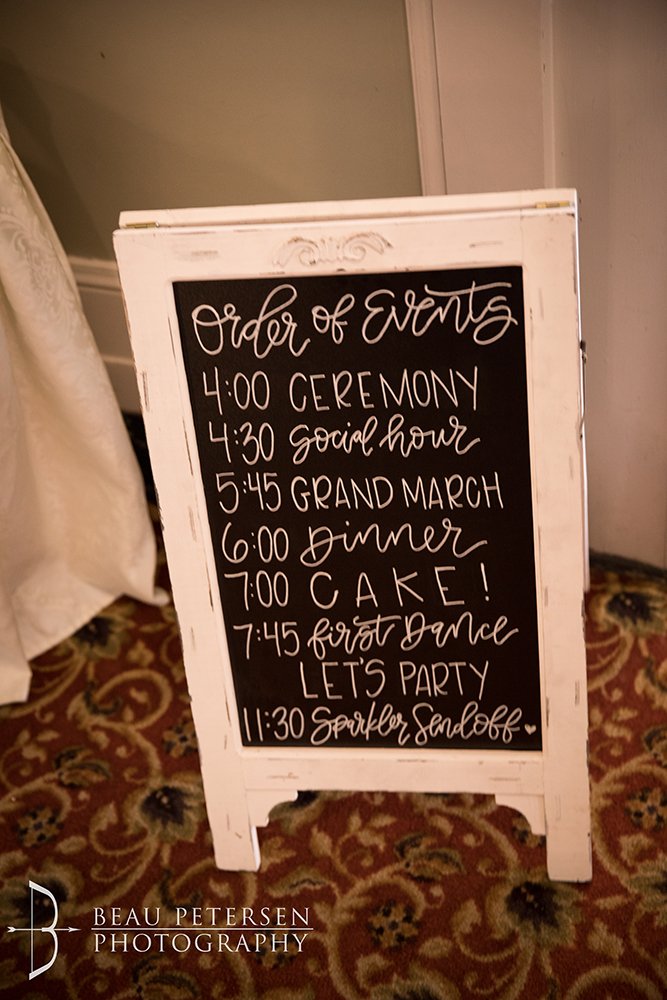 Order of Events
4:00 CEREMONY
4:30 Social hour
5:45 GRAND MARCH
6:00 Dinner
7:00 CAKE!
7:45 first Dance
LET'S PARTY
11:30 Sparkler Send off
B BEAU PETERSEN
PHOTOGRAPHY